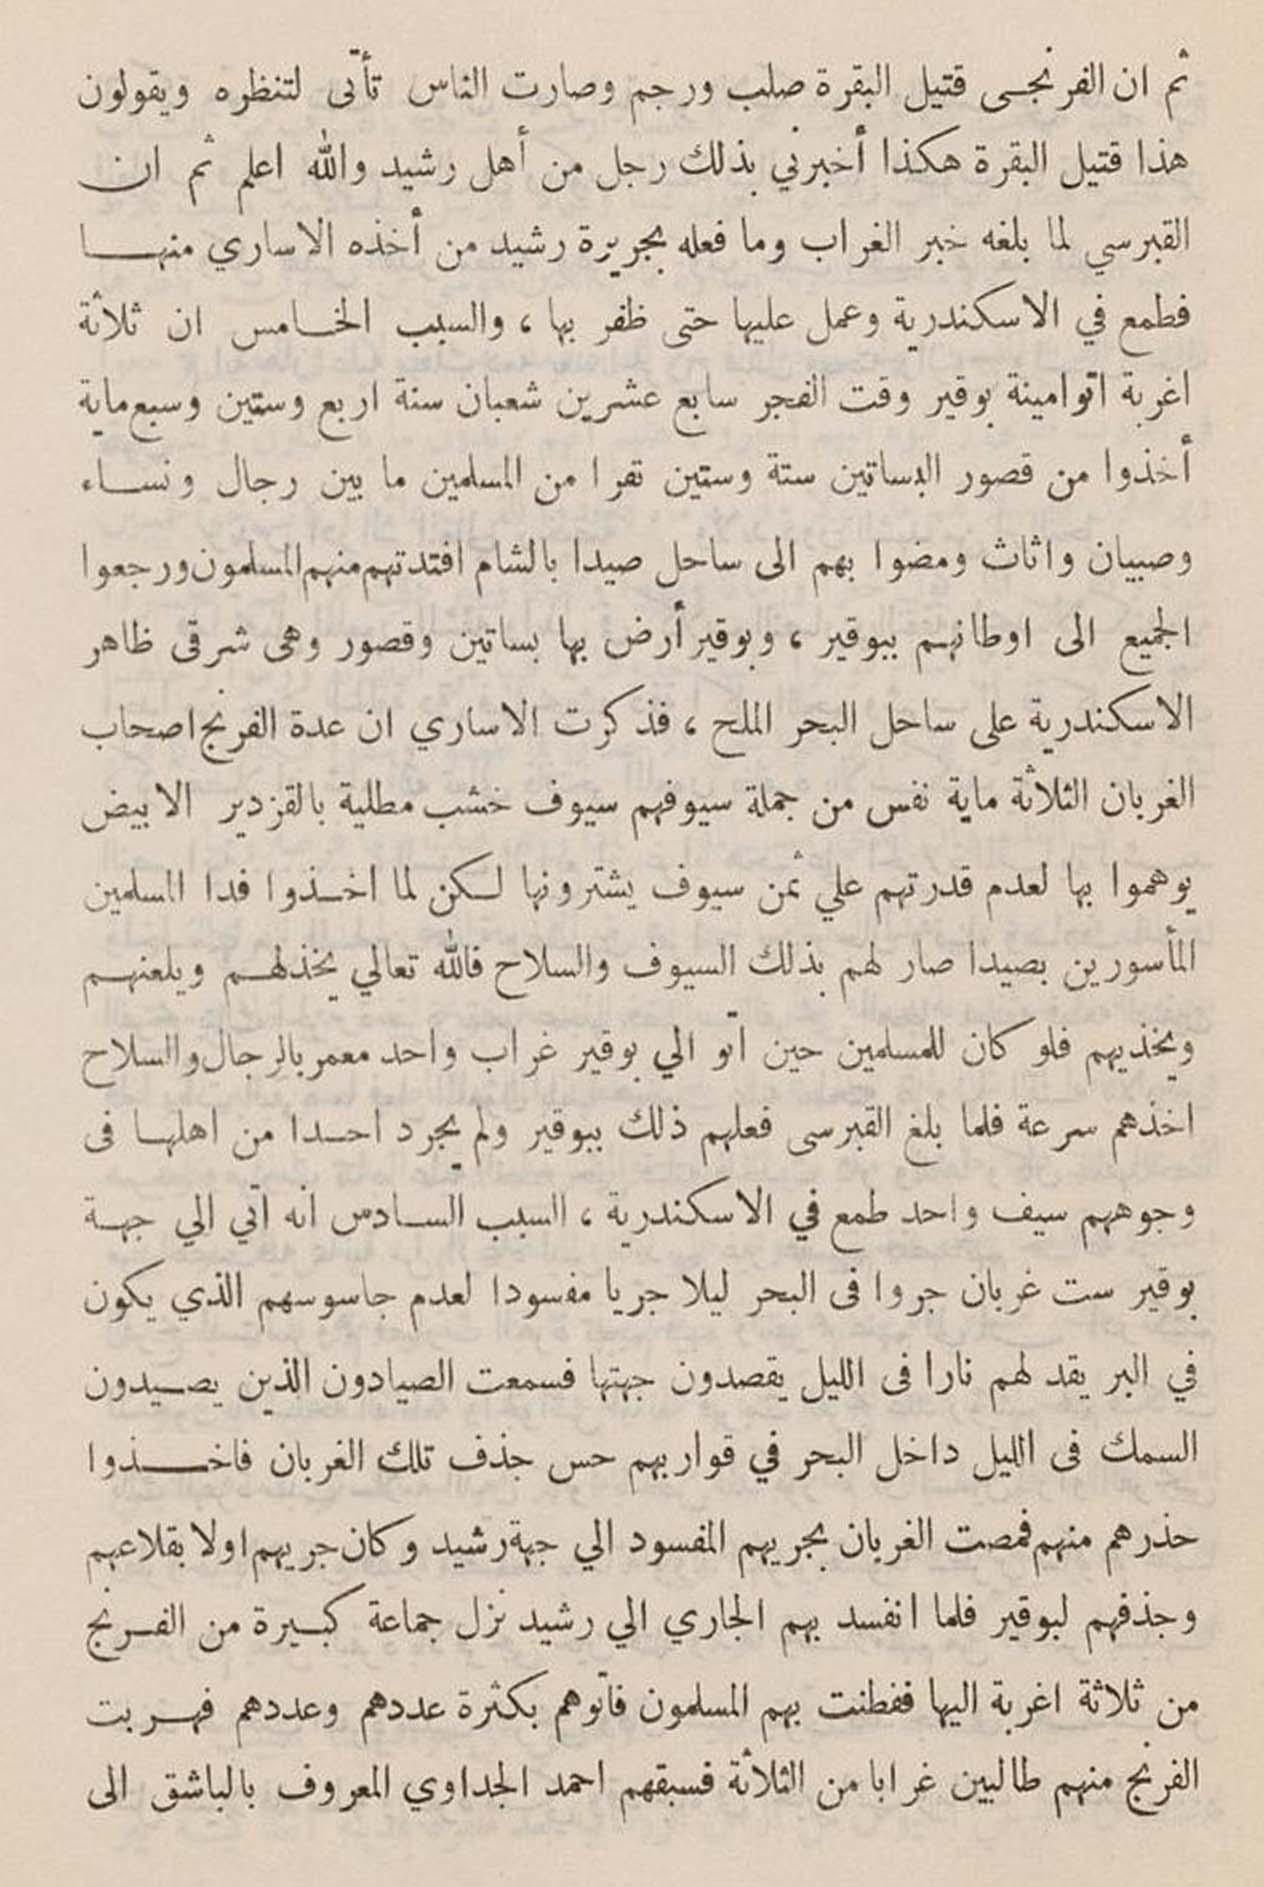 ثم ان الفرنجى قتيل البقرة صلب ورجم وصارت الناس تأتى لتنظره ويقولون
هذا قتيل البقرة هكذا أخبرني بذلك رجل من أهل رشيد والله اعلم ثم ان
القبرسي لما بلغه خبر الغراب وما فعله بجريرة رشيد من أخذه الاساري منهـــا
فطمع في الاسكندرية وعمل عليها حتى ظفر بها ، والسبب الخــامس ان ثلاثة
اغربة اتوا مينة بوقير وقت الفجر سابع عشرين شعبان سنة اربع وستين وسبع ماية
أخذوا من قصور البساتين ستة وستين نفرا من المسلمين ما بين رجال ونســاء
وصبيان واثاث ومضوا بهم الى ساحل صيدا بالشام افتدتهم منهم المسلمون ورجعوا
الجميع الى اوطانهم ببوقير ، وبوقير أرض بها بساتين وقصور وهى شرقى ظاهر
الاسكندرية على ساحل البحر الملح ، فذكرت الاساري ان عدة الفرنج اصحاب
الغربان الثلاثة ماية نفس من جملة سيوفهم سيوف خشب مطلية بالقزدير الابيض
يوهموا بها لعدم قدرتهم علي ثمن سيوف يشترونها لــكن لما اخــذوا فدا المسلمين
المأسورين بصيدا صار لهم بذلك السيوف والسلاح فالله تعالي يخذلهــم ويلعنهــم
ويخذيهم فلو كان للمسلمين حين اتو الي بوقير غراب واحد معمر بالرجال والسلاح
اخذهم سرعة فلما بلغ القبرسى فعلهم ذلك ببوقير ولم يجرد احــدا من اهلهــا فى
وجوههم سيف واحد طمع في الاسكندرية ، السبب الســادس انه اتي الي جهــة
بوقير ست غربان جروا فى البحر ليلا جريا مفسودا لعدم جاسوسهم الذي يكون
في البر يقد لهم نارا فى الليل يقصدون جهتها فسمعت الصيادون الذين يصــيدون
السمك فى الليل داخل البحر في قواربهم حس جذف تلك الغربان فاخـــذوا
حذرهم منهم فمصت الغربان بجريهم المفسود الي جهة رشيد وكان جريهم اولا بقلاعهم
وجذفهم لبوقير فلما انفسد بهم الجاري الي رشيد نزل جماعة كبــيرة من الفــرنج
من ثلاثة اغربة اليها ففطنت بهم المسلمون فاتوهم بكثرة عددهم وعددهم فهــربت
الفرنج منهم طالبين غرابا من الثلاثة فسبقهم احمد الجداوي المعروف بالباشق الى